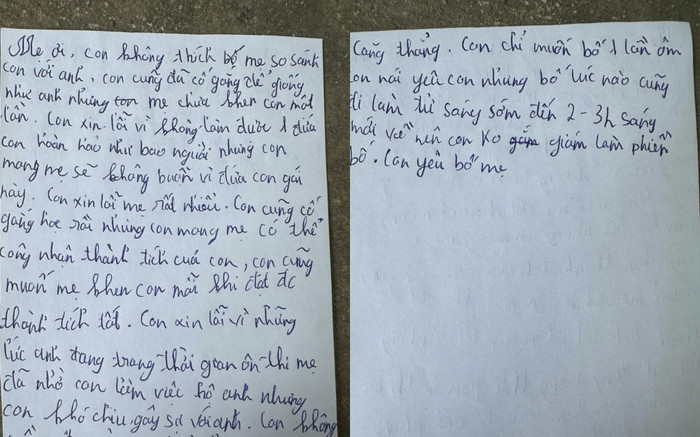 Mẹ ơi, con không thích bố mẹ so sánh
con với anh, con cũng đã cố gắng để giống
như anh nhưng mẹ chưa khen con một
lần. Con xin lỗi vì không làm được 1 đứa
con hoàn hảo như bao người nhưng con
mong mẹ sẽ không buồn vì đứa con gái
này. Con xin lỗi mẹ rất nhiều. Con cũng cố
gắng học rồi nhưng con mong mẹ có thể
công nhận thành tích của con, con cũng
muốn mẹ khen con mỗi khi đạt đc
thành tích tốt. Con xin lỗi vì những
lúc anh đang trong thời gian ôn thi mẹ
đã nhờ con làm việc hộ anh nhưng
con khó chịu gây sự với anh. Con không
căng thẳng. Con chỉ muốn bố 1 lần ôm
con nói yêu con nhưng bố lúc nào cũng
đi làm từ sáng sớm đến 2-3h sáng
mới về nên con ko giám làm phiền
bố. Con yêu bố mẹ